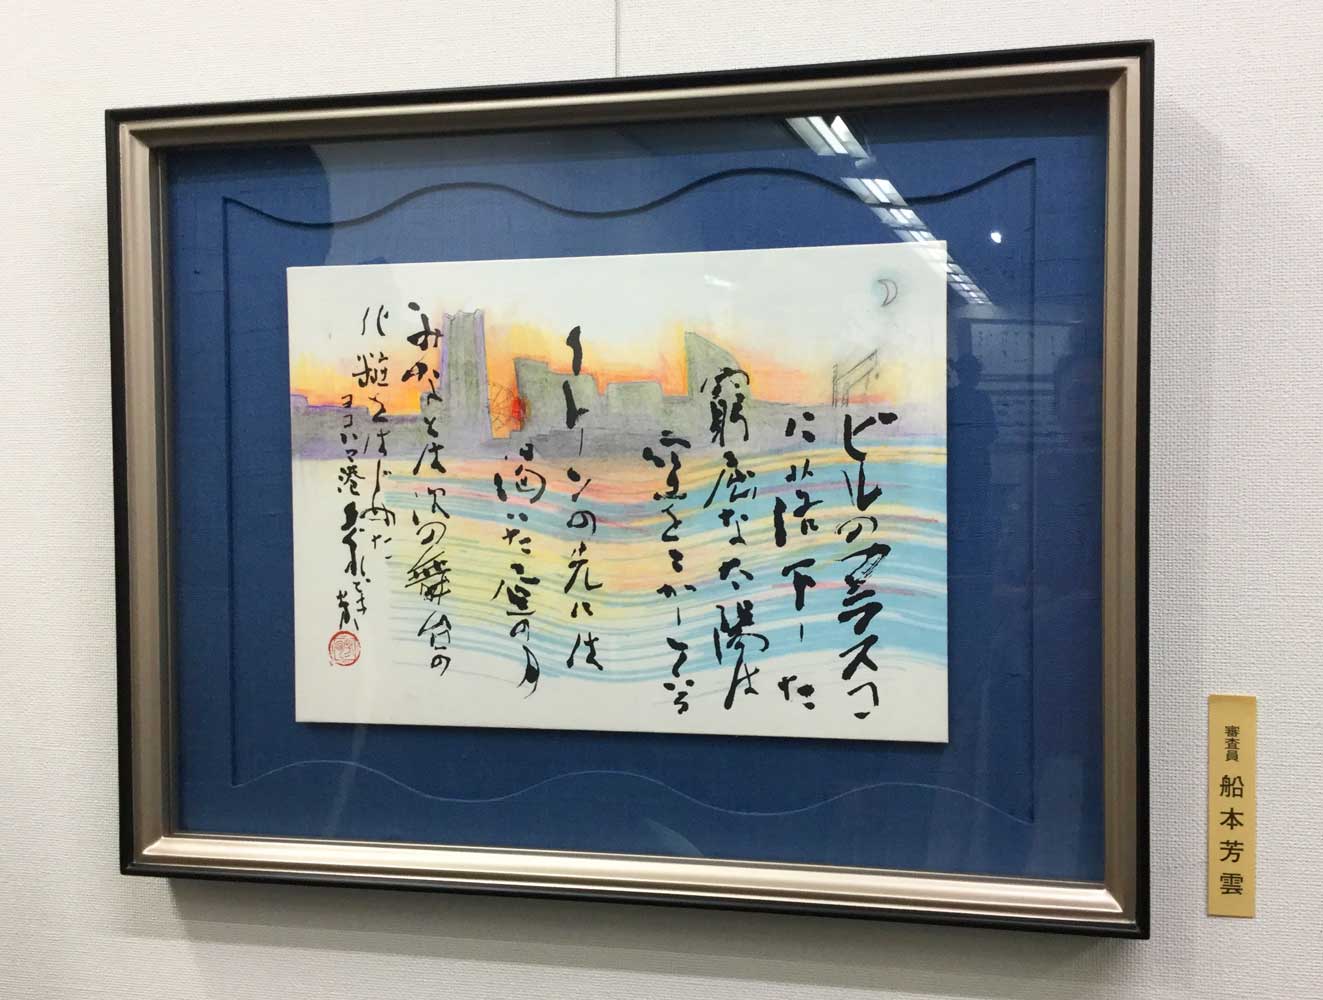 ビルのフラスコ
に落下した
窮屈な太陽は
空をこがしてゐる
クレーンの先には
渇いた空の月
みなとは次の舞台の
化粧をはじめた
ヨコハマ港
審査員 船本芳雲